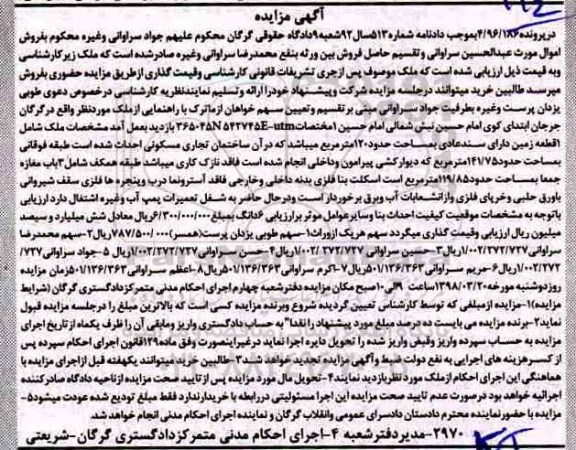 آگهی مزایده
درپرونده ۴/۹۶/۱۸۶بموجب دادنامه شماره۵۱۳سال۹۲شعبه۹دادگاه حقوقی گرگان محکوم علیهم جواد سراوانی وغیره محکوم بفروش
اموال مورث عبدالحسین سراوانی وتقسیم حاصل فروش بین ورثه بنفع محمدرضا سراوانی وغیره صادرشده است که ملک زیرکارشناسی
وبه قیمت ذیل ارزیابی شده است که ملک موصوف پس ازجری تشریفات قانونی کارشناسی وقیمت گذاری ازطریق مزایده حضوری بفروش
میرسد طالبین خرید میتوانند درجلسه مزایده شرکت وپیشنهاد خودرا ارائه وتسلیم نمایندنظریه کارشناسی درخصوص دعوی طوبی
یزدان پرست وغیره بطرفیت جواد سراوانی مبنی بر تقسیم وتعیین سهم خواهان ازماترک با راهنمایی ازملک موردنظر واقع درگرگان
جرجان ابتدای کوی امام حسین نبش شمالی امام حسین ۱مختصات۳۶۵۰۴۵N ۵۴۲۷۴۵E-utm بازدید بعمل آمد مشخصات ملک شامل
۱قطعه زمین دارای سندعادی بمساحت حدود۱۲۰مترمربع میباشد که درآن ساختمان تجاری مسکونی احداث شده است طبقه فوقانی
بمساحت حدود۱۴۱/۷۵مترمربع که دیوارکشی پیرامون وداخلی انجام شده است فاقد نازک کاری میباشد طبقه همکف شامل۳باب مغازه
جمعا بمساحت حدود۱۱۹/۸۵مترمربع است اسکلت بنا فلزی بدنه داخلی وخارجی فاقد آسترونما درب وپنجره ها فلزی سقف شیروانی
باورق حلبی وخرپای فلزی وازانشعابات آب وبرق برخورداراست ودرحال حاضر به شغل تعمیرات پمپ آب وغیره اشتغال دارد ارزیابی
باتوجه به مشخصات موقعیت کیفیت احداث بنا وسایرعوامل موثر برارزیابی ۶دانگ بمبلغ۶/۳۰۰/۰۰۰/۰۰۰ریال معادل شش میلیارد و سیصد
میلیون ریال ارزیابی وقیمت گذاری میگردد سهم هریک ازوراث۱-سهم طوبی یزدان پرست(همسر)۷۸۷/۵۰۰/۰۰۰ریال۲-سهم محمدرضا
سراوانی۱/۰۰۲/۲۷۲/۷۲۷ریال۳-حسین سراوانی ۱/۰۰۲/۲۷۲/۷۲۷ریال۴-حسن سراوانی۱/۰۰۲/۲۷۲/۷۲۷ریال ۵-جواد سراوانی۷۲۷/
۱/۰۰۲/۲۷۲ریال۶-مریم سراوانی۵۰۱/۱۳۶/۳۶۳ریال۷-اکرم سراوانی۵۰۱/۱۳۶/۳۶۳ریال۸-اعظم سراوانی۵۰۱/۱۳۶/۳۶۳زمان مزایده
روزدوشنبه مورخه۱۳۹۸/۰۳/۲۰ساعت ۹الی۱۰صبح مکان مزایده دفترشعبه چهارم اجرای احکام مدنی متمرکزدادگستری گرگان (شرایط
مزایده)۱-مزایده ازمبلغی که توسط کارشناس تعیین گردیده شروع وبرنده مزایده کسی است که بالاترین مبلغ را درجلسه مزایده قبول
نماید۲-برنده مزایده می بایست ده درصد مبلغ مورد پیشنهاد را نقدا" به حساب دادگستری واریز ومابقی آن را ظرف یکماه از تاریخ اجرای
مزایده به حساب سپرده واریز وقبض واریز شده را تحویل دایره اجرا نماید درغیراینصورت وفق ماده۱۲۹قانون اجرای احکام سپرده پس
از کسرهزینه های اجرایی به نفع دولت ضبط وآگهی مزایده تجدید خواهد شد۳-طالبین خرید میتوانند یکهفته قبل ازاجرای مزایده با
هماهنگی این اجرای احکام ازملک مورد نظربازدید نمایند۴-تحویل مال مورد مزایده پس از تایید صحت مزایده ازناحیه دادگاه صادرکننده
اجرائیه خواهد بود درصورت عدم تایید صحت مزایده این اجرا مسئولیتی دررابطه با خریدارندارد فقط مبلغ تودیع شده عودت میشود۵-
مزایده با حضورنماینده محترم دادستان دادسرای عمومی وانقلاب گرگان و نماینده اجرای احکام مدنی انجام خواهد شد.
۲۹۷۰-مدیردفترشعبه ۴-اجرای احکام مدنی متمرکزدادگستری گرگان-شریعتی